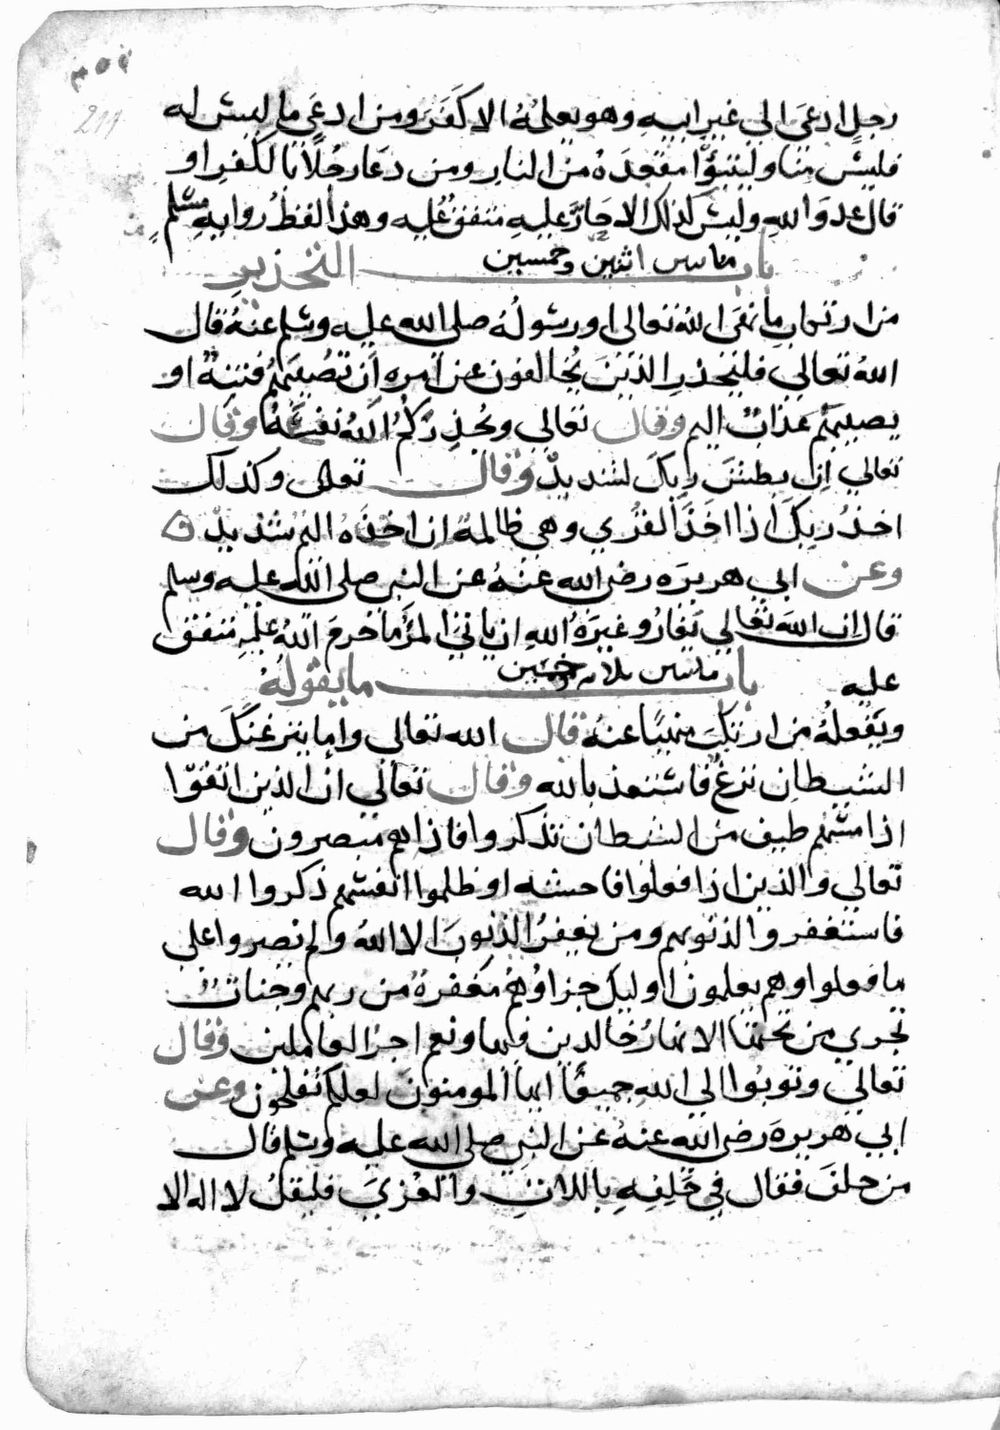 ٣٥٩
299
رجل ادعى الي غير ابيه وهو يعلمُهُ الا كَفَرَ ومن ادعَى ما ليس له
فليسَ مِنا وليتبوَّا مقعَدَهُ من النار ومن دعَا رجُلاً بالكفرِ او
قال عدوَ اللهِ وليسَ كذلك الا حَارَ عليهِ متفق عليه وهذا لفظُ روايهِ مسلمٍ
بابــ مائتين اثنين وخمسين التحذيرِ
من ارتكابِ ما نهَى اللهُ تعالى او رسولُهُ صلى الله عليه وسلم عنهُ قال
اللهُ تعالي فليَحْذرِ الذينَ يُخالفون عن امرِهِ اَن تُصيبَهُم فتنةٌ او
يصيبَهُم عَذابٌ اليم وقال تعالي ويُحذِرُكُمُ اللهُ نفسَهُ وقال
تعالي اِن بطشَ ربِكَ لشديدٌ وقال تعالى وكذلك
اخذُ ربِكَ اِذا اخَذَ القُرَي وهي ظالمةٌ ان اخذَهُ اليمٌ شديدٌ ه
وعن ابي هريرَه رضي الله عنهُ عن النبي صلى الله عليه وسلم
قال ان اللهَ تعَالي يَغارُ وغيرَةُ اللهِ ان يا تيَ المرُ ما حَرمَ اللهُ عليهِ متفق
عليه بابــ مائتين ثلاثه وخمسين ما يقولُهُ
ويَفعلُهُ من ارتكبَ منهيًا عنهُ قال الله تعالى واما ينزغنكَ من
الشيطانِ نزغٌ فاستعذ بالله وقال تعالي ان الذين اتقوا
اذا مسَّهم طيف من الشيطان تذكروا فاذا هم مبصرون وقال
تعالي والذين اذا فعلوا فاحشه او ظلموا انفسَهم ذكروا الله
فاستغفروا لذنوبهم ومن يغفِرُ الذنوبَ الا اللهُ ولم يُصروا على
ما فعلوا وهم يعلمون اوليك جزاوُهُم مَغفرةٌ من ربهم وجناتٌ
تجري من تحتها الانهارُ خالدين فيها ونعم اجرُ العاملين وقال
تعالي وتوبوا الي اللهِ جميعًا ايها المومنونَ لعلكم تفلحون وعن
ابي هريرهَ رضي الله عنهُ عن النبي صلى الله عليه وسلم قال
من حلفَ فقال في حَلِفِهِ باللاتِ والعُزيَ فليقلُ لا اله الا